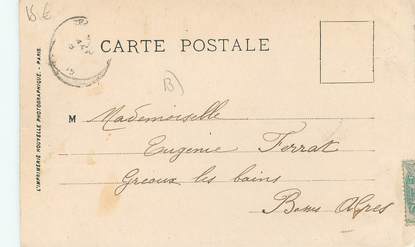 15 €
CARTE POSTALE
B)
L'IMPRIMERIE NOUVELLE PHOTOGRAPHIQUE. - PARIS.
M Mademoiselle
Eugenie Ferrat
Greoux les bains
Basses Alpes